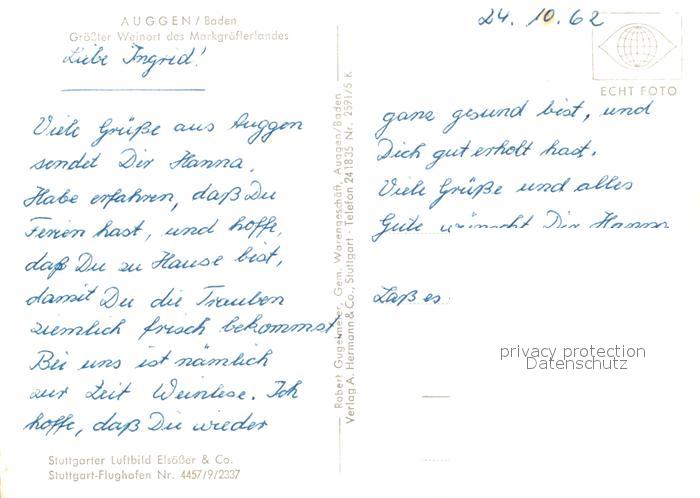 AUGGEN / Baden
Größter Weinort des Markgräflerlandes
Liebe Ingrid!
Viele Grüße aus Auggen
sendet Dir Hanna.
Habe erfahren, daß Du
Ferien hast, und hoffe,
daß Du zu Hause bist,
damit Du die Trauben
ziemlich frisch bekommst.
Bei uns ist nämlich
zur Zeit Weinlese. Ich
hoffe, daß Du wieder
Stuttgarter Luftbild Elsößer & Co.
Stuttgart-Flughafen Nr. 4457/9/2337
Robert Gugelmeier, Gem. Warengeschäft, Auggen/Baden
Verlag A. Hermann & Co., Stuttgart · Telefon 241835 Nr. 2591/5 K
24. 10. 62
ECHT FOTO
ganz gesund bist, und
Dich gut erholt hast.
Viele Grüße und alles
Gute wünscht Dir Hanna
Laß es
privacy protection
Datenschutz